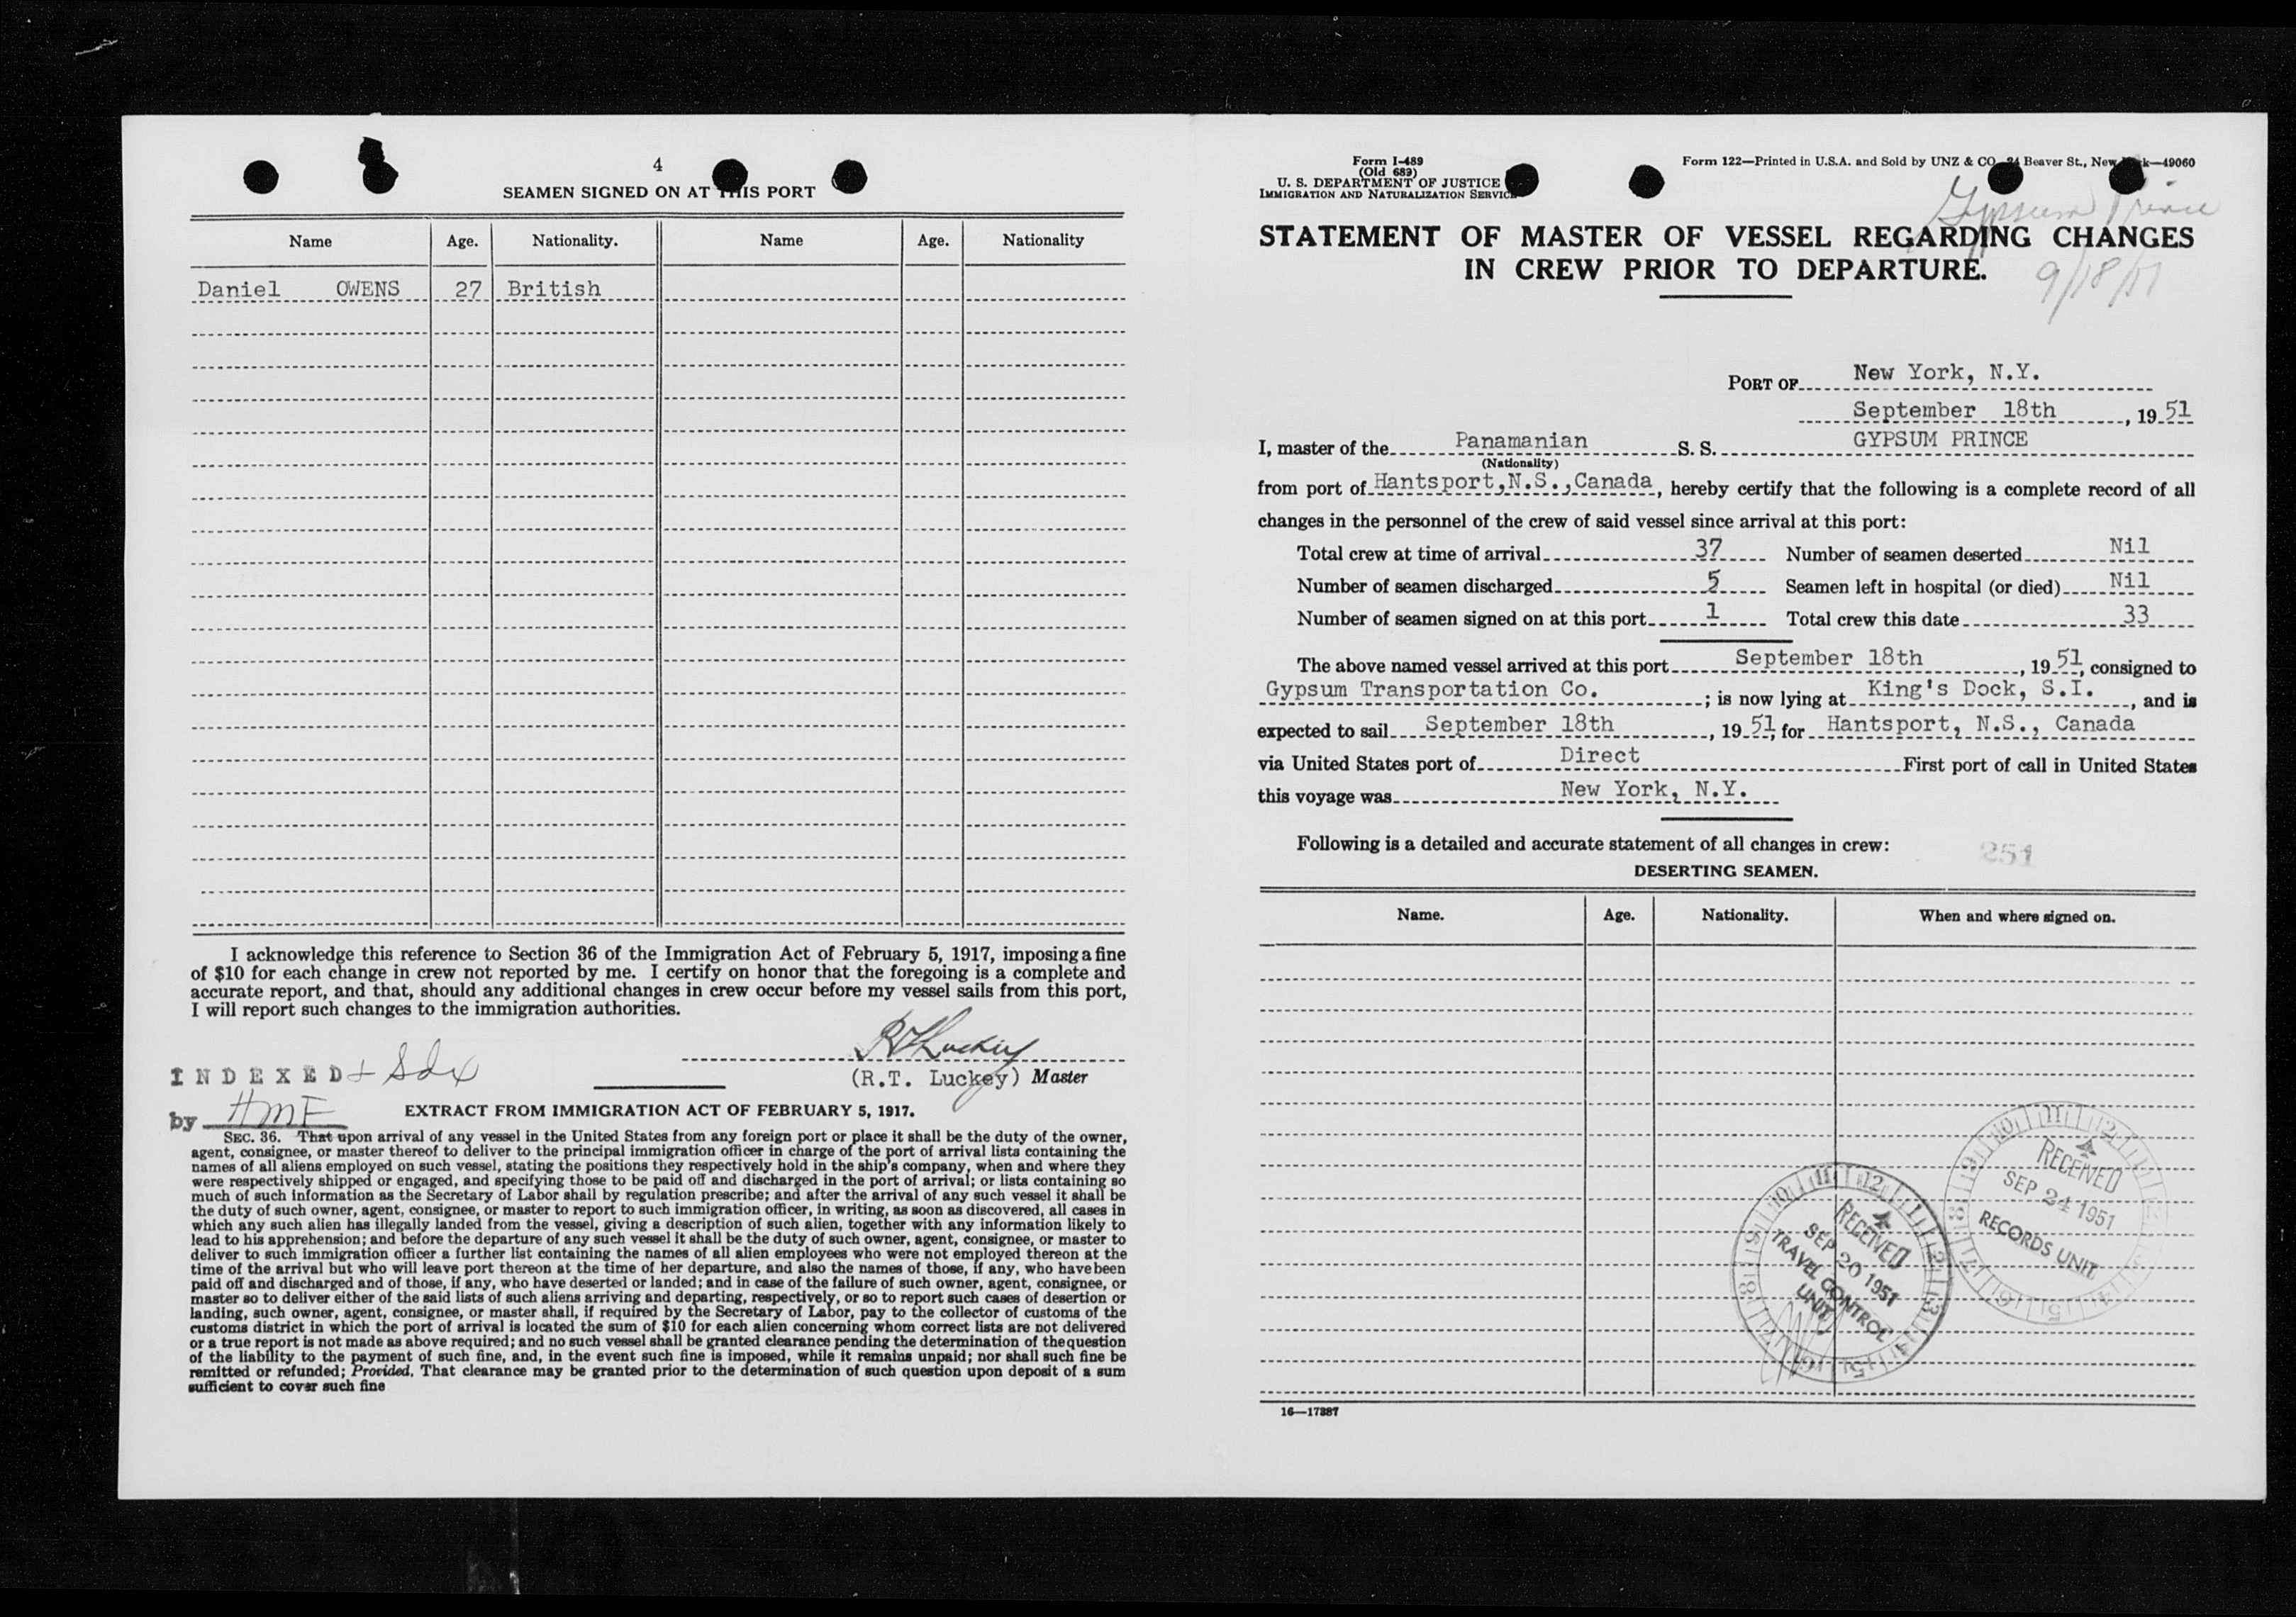 4
SEAMEN SIGNED ON AT THIS PORT
Name Age. Nationality. Name Age. Nationality
Daniel OWENS 27 British
I acknowledge this reference to Section 36 of the Immigration Act of February 5, 1917, imposing a fine
of $10 for each change in crew not reported by me. I certify on honor that the foregoing is a complete and
accurate report, and that, should any additional changes in crew occur before my vessel sails from this port,
I will report such changes to the immigration authorities.
RTLuckey
(R.T. Luckey) Master
INDEXED
by HMF
EXTRACT FROM IMMIGRATION ACT OF FEBRUARY 5, 1917.
SEC. 36. That upon arrival of any vessel in the United States from any foreign port or place it shall be the duty of the owner,
agent, consignee, or master thereof to deliver to the principal immigration officer in charge of the port of arrival lists containing the
names of all aliens employed on such vessel, stating the positions they respectively hold in the ship's company, when and where they
were respectively shipped or engaged, and specifying those to be paid off and discharged in the port of arrival; or lists containing so
much of such information as the Secretary of Labor shall by regulation prescribe; and after the arrival of any such vessel it shall be
the duty of such owner, agent, consignee, or master to report to such immigration officer, in writing, as soon as discovered, all cases in
which any such alien has illegally landed from the vessel, giving a description of such alien, together with any information likely to
lead to his apprehension; and before the departure of any such vessel it shall be the duty of such owner, agent, consignee, or master to
deliver to such immigration officer a further list containing the names of all alien employees who were not employed thereon at the
time of the arrival but who will leave port thereon at the time of her departure, and also the names of those, if any, who have been
paid off and discharged and of those, if any, who have deserted or landed; and in case of the failure of such owner, agent, consignee, or
master so to deliver either of the said lists of such aliens arriving and departing, respectively, or so to report such cases of desertion or
landing, such owner, agent, consignee, or master shall, if required by the Secretary of Labor, pay to the collector of customs of the
customs district in which the port of arrival is located the sum of $10 for each alien concerning whom correct lists are not delivered
or a true report is not made as above required; and no such vessel shall be granted clearance pending the determination of the question
of the liability to the payment of such fine, and, in the event such fine is imposed, while it remains unpaid; nor shall such fine be
remitted or refunded; Provided, That clearance may be granted prior to the determination of such question upon deposit of a sum
sufficient to cover such fine
Form I-489
(Old 689)
U. S. DEPARTMENT OF JUSTICE
IMMIGRATION AND NATURALIZATION SERVICE
Form 122—Printed in U.S.A. and Sold by UNZ & CO., 24 Beaver St., New York—49060
Gypsum Prince
9/18/51
STATEMENT OF MASTER OF VESSEL REGARDING CHANGES
IN CREW PRIOR TO DEPARTURE.
PORT OF New York, N.Y.
September 18th, 1951
I, master of the Panamanian S. S. GYPSUM PRINCE
(Nationality)
from port of Hantsport,N.S.,Canada, hereby certify that the following is a complete record of all
changes in the personnel of the crew of said vessel since arrival at this port:
Total crew at time of arrival 37 Number of seamen deserted Nil
Number of seamen discharged 5 Seamen left in hospital (or died) Nil
Number of seamen signed on at this port 1 Total crew this date 33
The above named vessel arrived at this port September 18th, 1951, consigned to
Gypsum Transportation Co.; is now lying at King's Dock, S.I., and is
expected to sail September 18th, 1951, for Hantsport, N.S., Canada
via United States port of Direct First port of call in United States
this voyage was New York, N.Y.
Following is a detailed and accurate statement of all changes in crew:
251
DESERTING SEAMEN.
Name. Age. Nationality. When and where signed on.
RECEIVED
SEP 24 1951
RECORDS UNIT
RECEIVED
SEP 20 1951
TRAVEL CONTROL
UNIT
16—17887